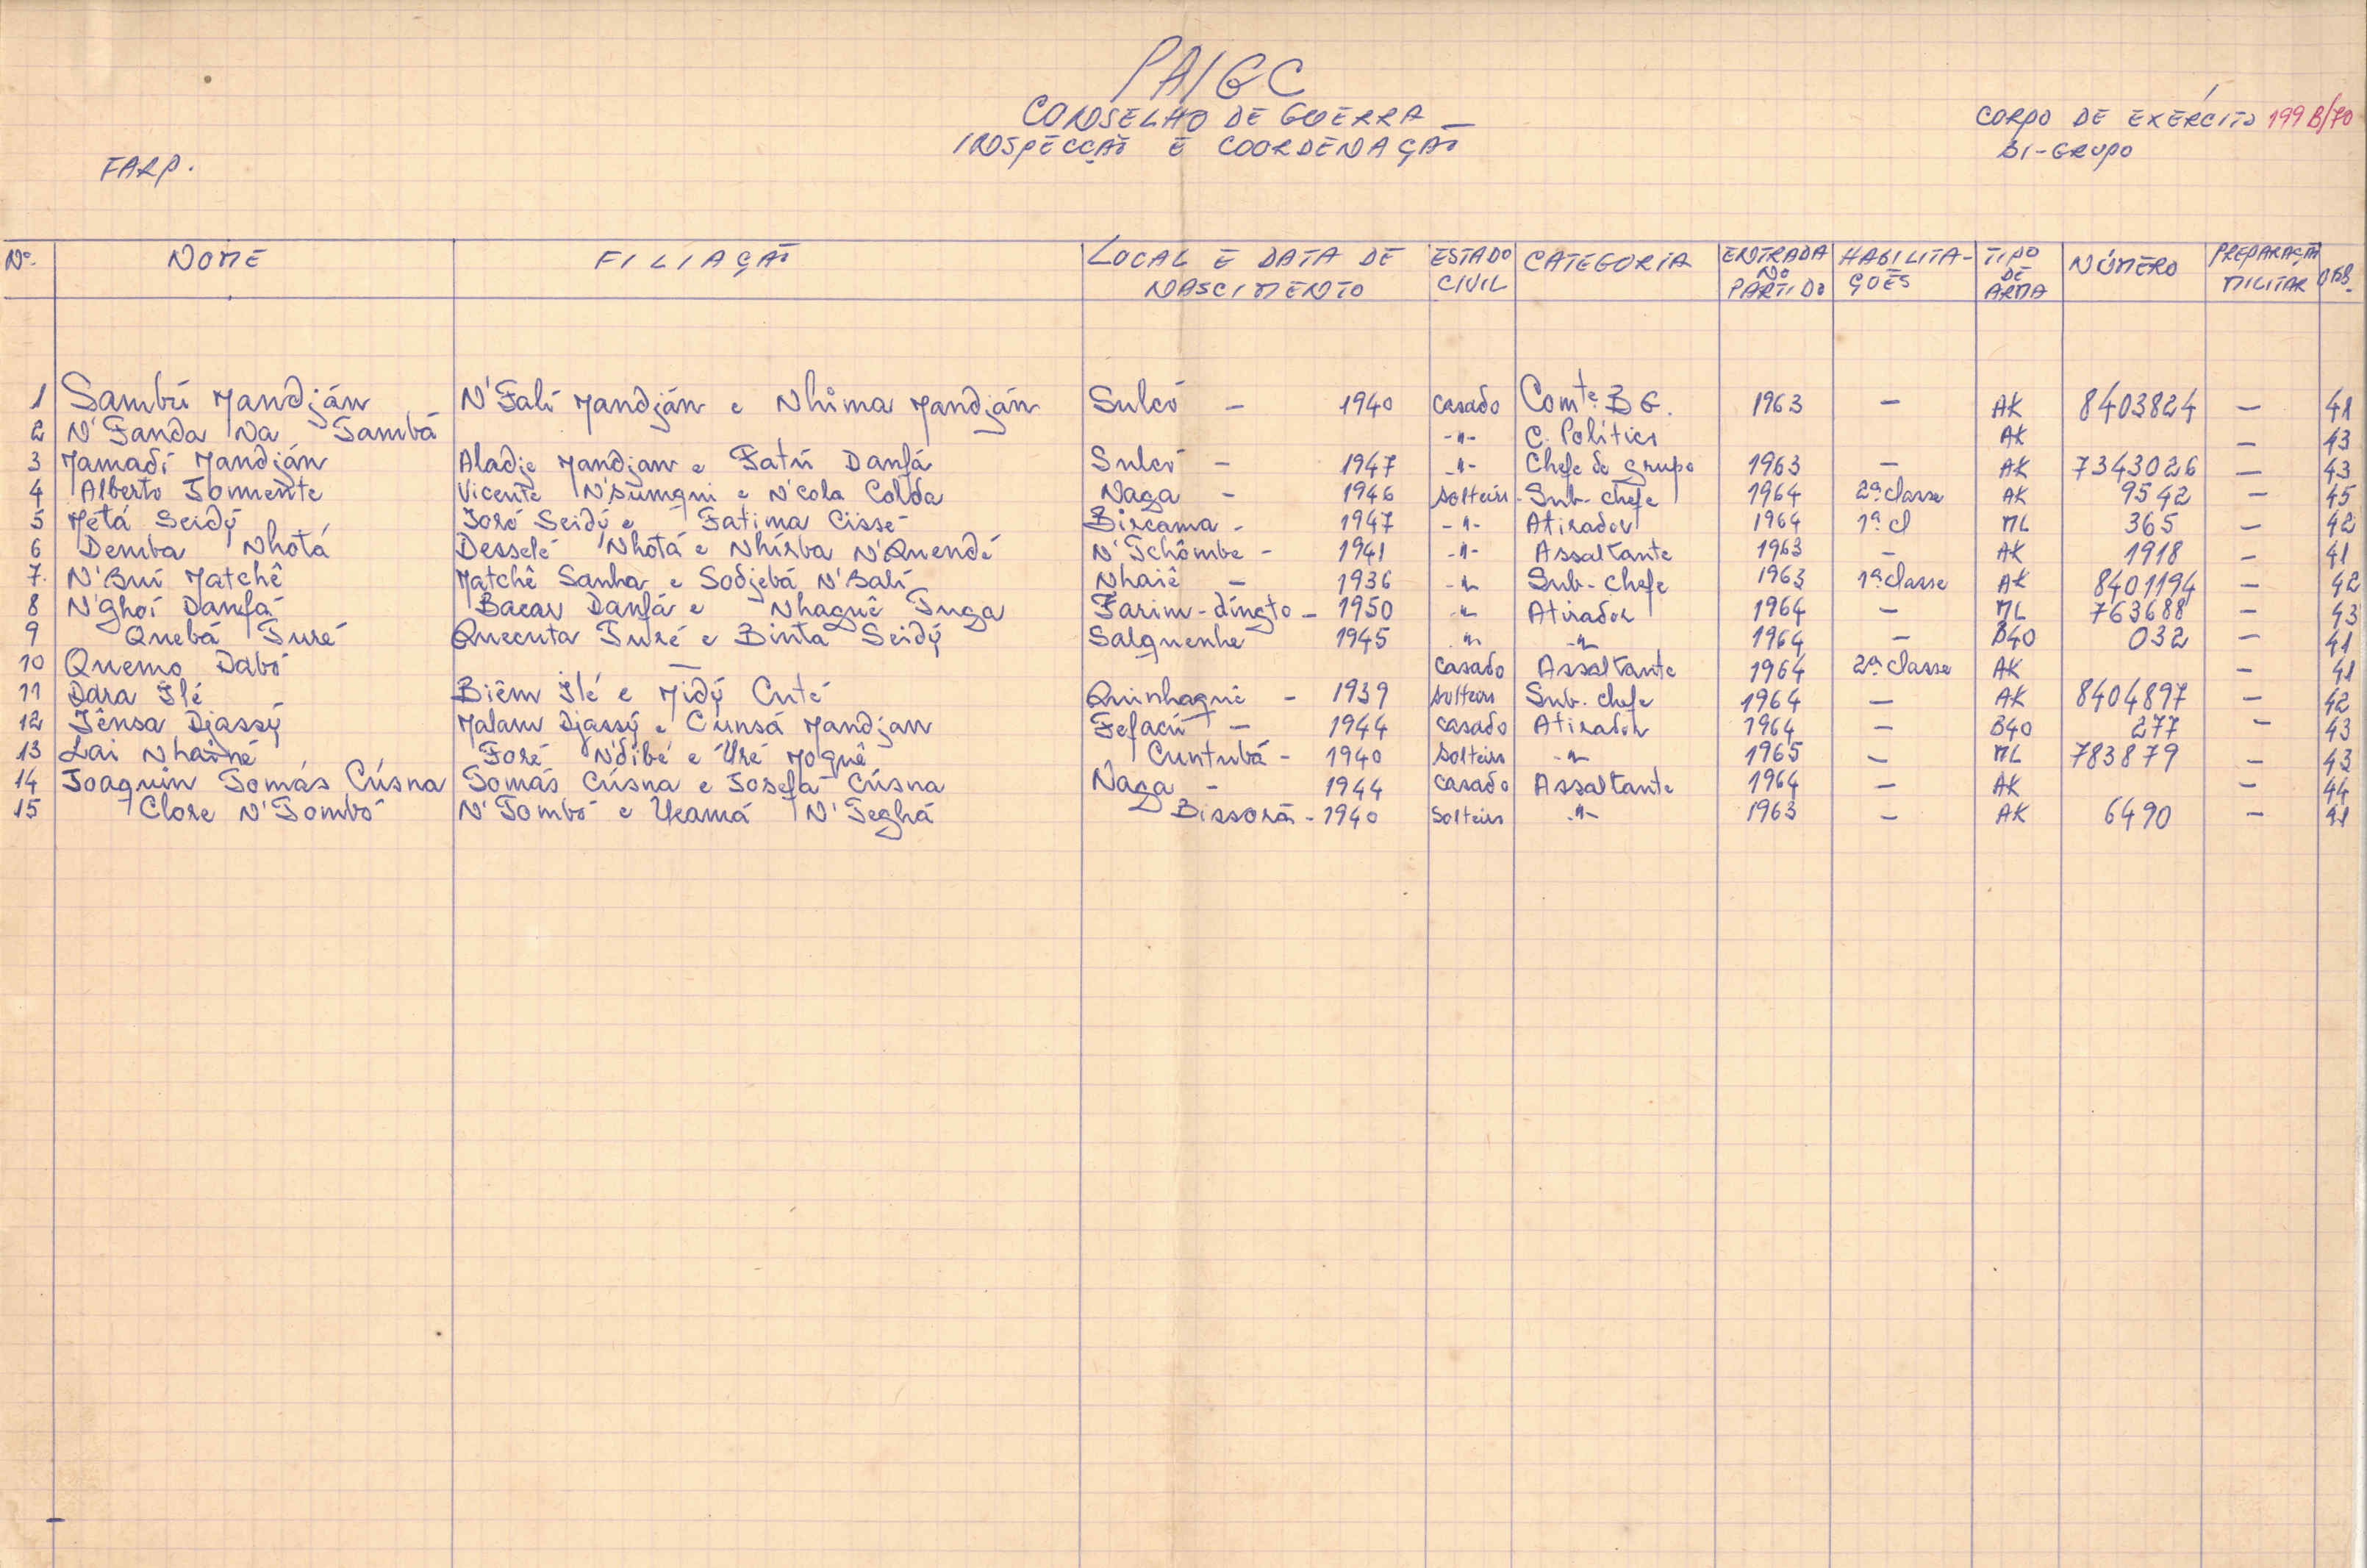 PAIGC
CONSELHO DE GUERRA
INSPECÇÃO E COORDENAÇÃO
CORPO DE EXÉRCITO 199B/70
BI-GRUPO
FARP.
Nº. NOME FILIAÇÃO LOCAL E DATA DE NASCIMENTO ESTADO CIVIL CATEGORIA ENTRADA NO PARTIDO HABILITA-ÇÕES TIPO DE ARMA NÚMERO PREPARAÇÃO MILITAR OBS.
1 Sambú Mandján N'Fali Mandján e Nhima Mandján Sulcó - 1940 casado Comte. B G. 1963 - AK 8403824 - 41
2 N'Fanda Na Tambá -"- C. Politico AK - 43
3 Mamadí Mandján Aladje Mandjan e Fatú Danfá Sulcó - 1947 -"- Chefe de grupo 1963 - AK 7343026 - 43
4 Alberto Tommente Vicente N'Sumqni e N'cola Colda Naga - 1946 solteiro - Sub-chefe 1964 2ª classe AK 9542 - 45
5 Metá Seidý José Seidý e Fatima Cissé Bircama - 1947 -"- Atirador 1964 1ª cl ML 365 - 42
6 Demba Nhotá Desselé Nhotá e Nhírba N'Quendé N'Tchômbe - 1941 -"- Assaltante 1963 - AK 1918 - 41
7. N'Bui Matchê Matchê Sanha e Sodjebá N'Balí Nhaiê - 1936 -"- Sub-chefe 1963 1ª classe AK 8401194 - 42
8 N'ghoí Danfá Bacar Danfá e Nhaguê Tuga Farim-díngto - 1950 -"- Atirador 1964 - ML 763688 - 43
9 Quebá Turé Quecuta Turé e Binta Seidý Salquenhe 1945 -"- -"- 1964 - B40 032 - 41
10 Quemo Dabó — casado Assaltante 1964 2ª classe AK - 41
11 Dara Ilé Biêm Ilé e Midý Cuté Quinhaquê - 1939 solteiro Sub-chefe 1964 - AK 8404897 - 42
12 Iênsa Djassý Malam Djassý e Cúnsá Mandjan Fefacú - 1944 casado Atirador 1964 - B40 277 - 43
13 Lai Nhainé Foré N'dibé e Uré Moquê Cuntubá - 1940 solteiro -"- 1965 - ML 783879 - 43
14 Joaquin Tomás Cúsna Tomás Cúsna e Josefa Cúsna Naga - 1944 casado Assaltante 1964 - AK - 44
15 Clore N'Tombó N'Tombó e Ucamá N'Teghá Bissorã - 1940 solteiro -"- 1963 - AK 6490 - 41